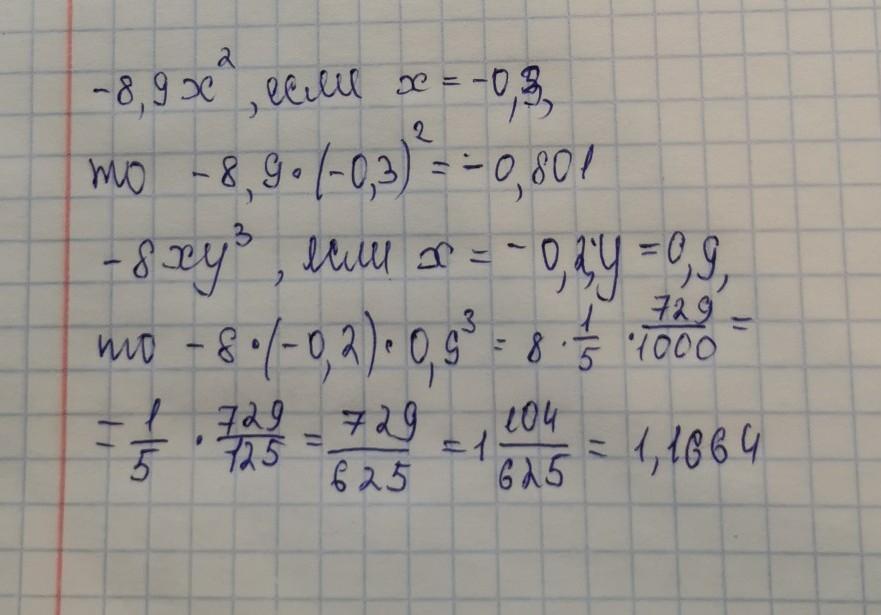 -8,9x², если x = -0,3,
то -8,9·(-0,3)² = -0,801
-8xy³, если x = -0,2; y = 0,9,
то -8·(-0,2)·0,9³ = 8·1/5·729/1000 =
= 1/5·729/125 = 729/625 = 1 104/625 = 1,1664